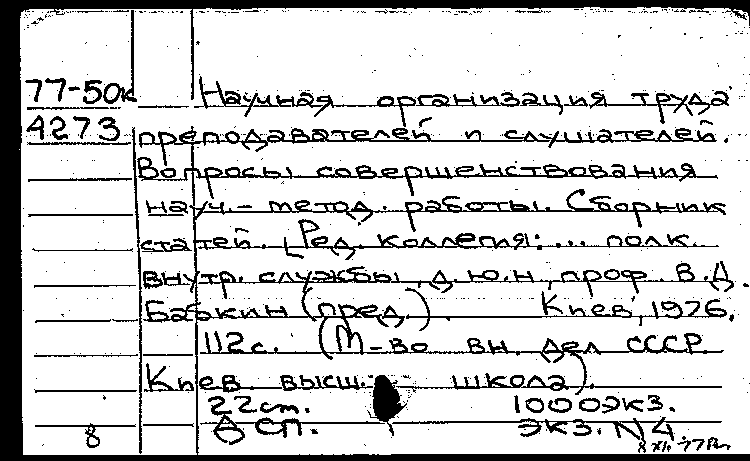 77-50к Научная организация труда
4273 преподавателей и слушателей.
Вопросы совершенствования
науч.-метод. работы. Сборник
статей. [Ред. коллегия: ... полк.
внутр. службы, д.ю.н, проф. В.Д.
Бабкин (пред.). Киев, 1976.
112с. (М-во вн. дел СССР.
Киев. высш. школа).
22см. 1000экз.
8 ДСП. экз. N4
8 XII-77